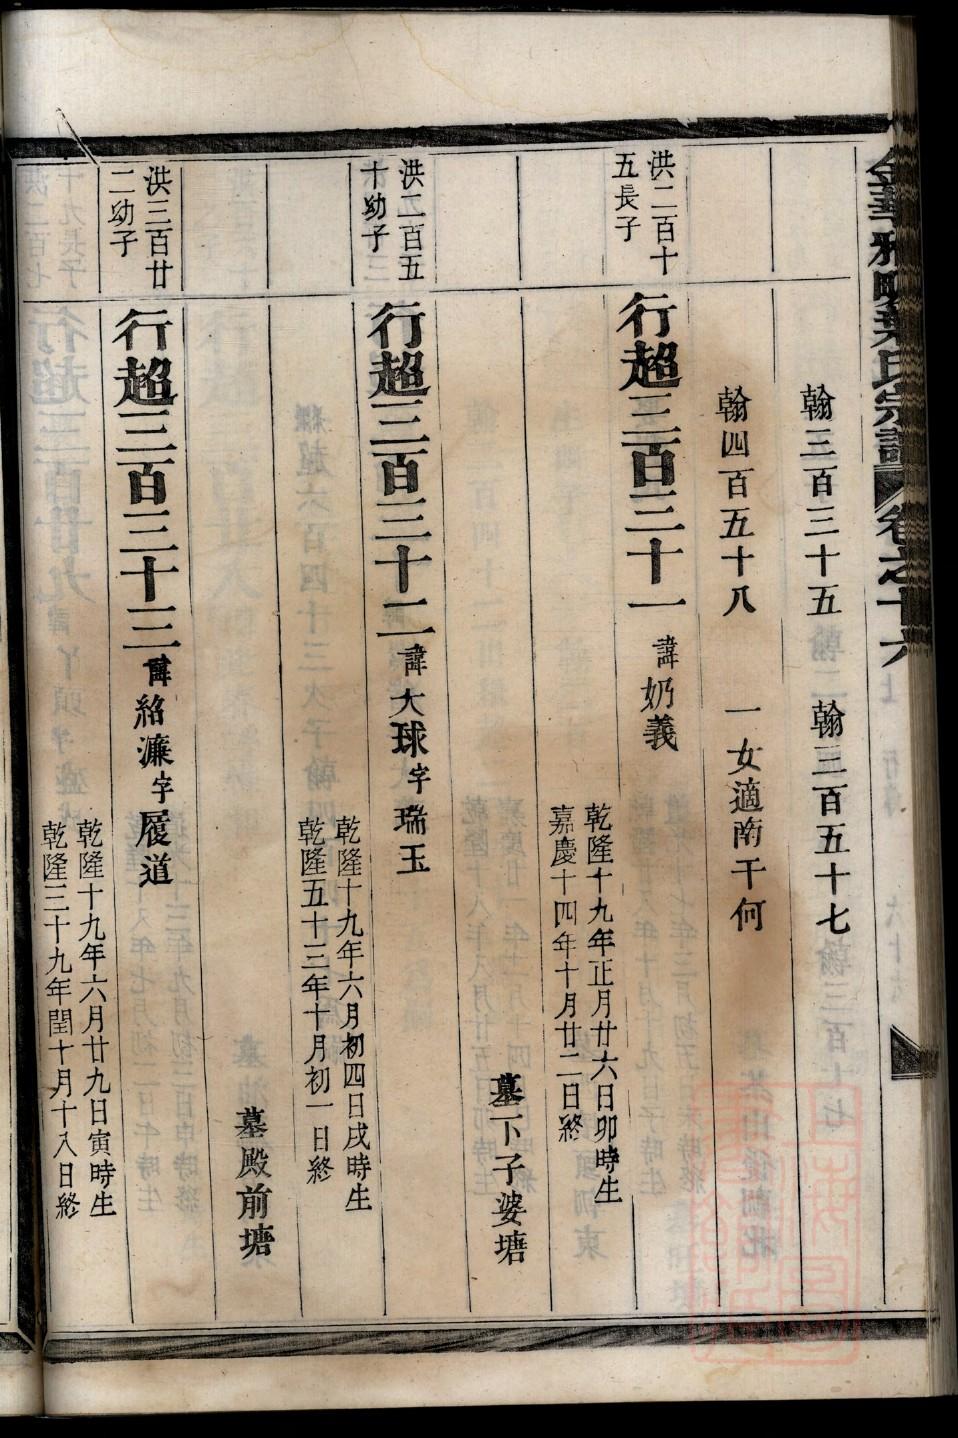 金華雅畈葉氏宗譜 卷之十六
翰三百三十五 翰三百五十七
翰四百五十八 一女適南干何
洪二百十
五長子
行超三百三十一 諱奶義
乾隆十九年正月廿六日卯時生
嘉慶十四年十月廿二日終
墓下子婆塘
洪二百五
十幼子
行超三百三十二 諱大球字瑞玉
乾隆十九年六月初四日戌時生
乾隆五十三年十月初一日終
墓殿前塘
洪三百廿
二幼子
行超三百三十三 諱紹濂字履道
乾隆十九年六月廿九日寅時生
乾隆三十九年閏十月十八日終